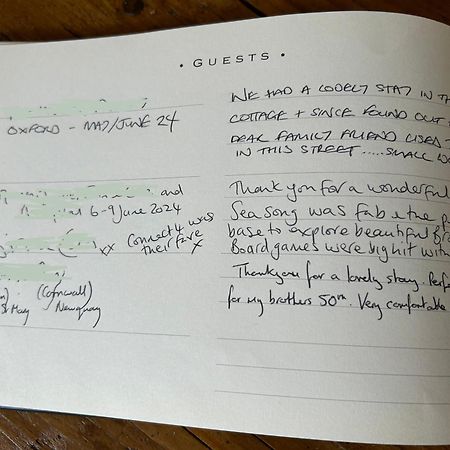 • GUESTS •
OXFORD - MAY/JUNE 24
WE HAD A LOVELY STAY IN TH
COTTAGE + SINCE FOUND OUT
DEAR FAMILY FRIEND USED
IN THIS STREET ..... SMALL WO
and
6-9 June 2024
xx Connect 4 was
their fave
x
Thank you for a wonderful
Sea Song was fab & the p
base to explore beautiful
Board games were big hit with
(Cornwall)
St Mary Newquay
Thankyou for a lovely stay. Perfe
for my brothers 50th. Very comfortable